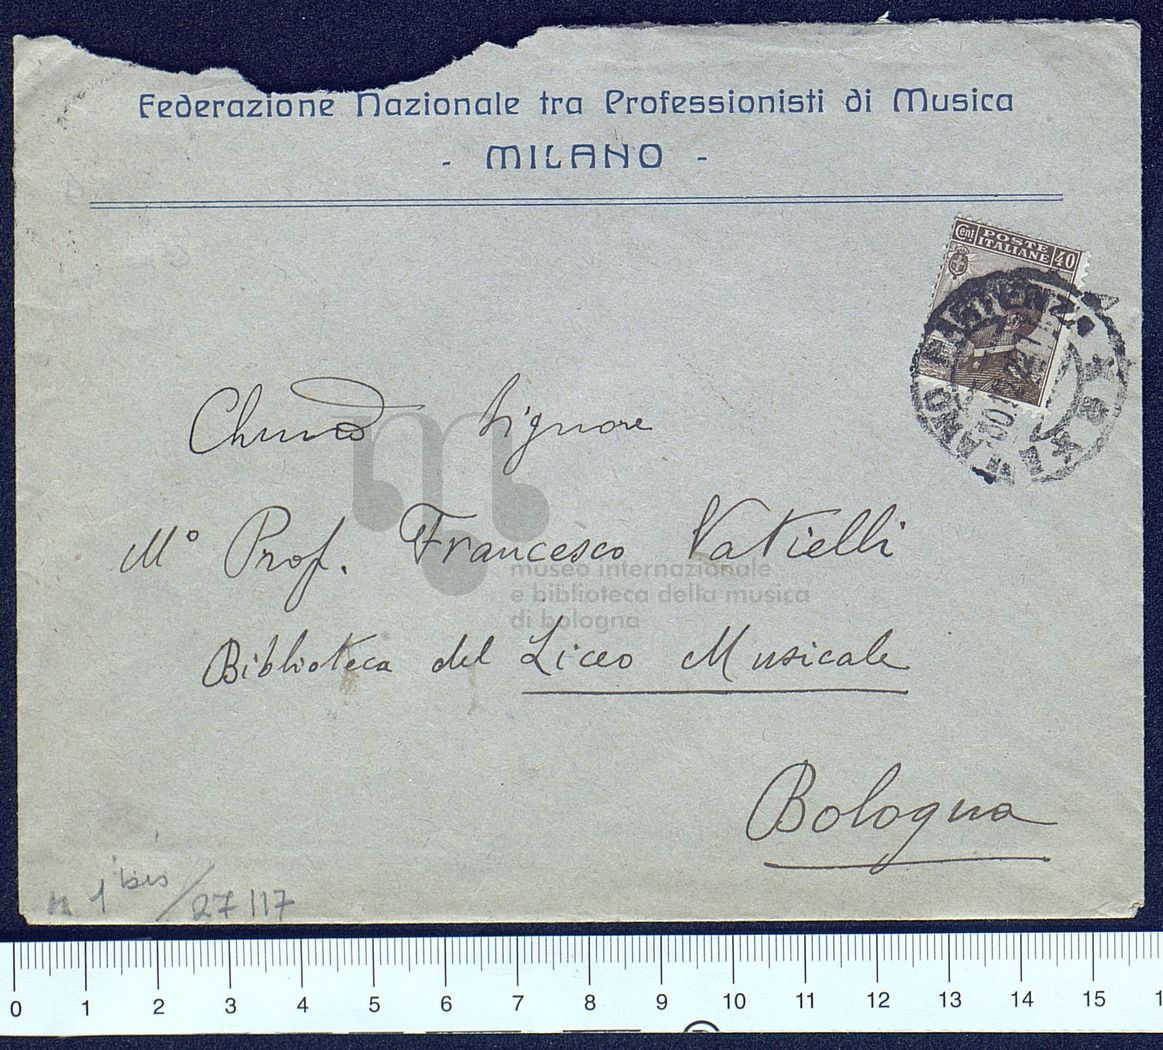 Federazione Nazionale tra Professionisti di Musica
- MILANO -
Cent POSTE ITALIANE 40
Signore
M° Prof. Francesco Vatielli
Biblioteca del Liceo Musicale
Bologna
museo internazionale
e biblioteca della musica
di bologna
1 bis/27 117
0 1 2 3 4 5 6 7 8 9 10 11 12 13 14 15